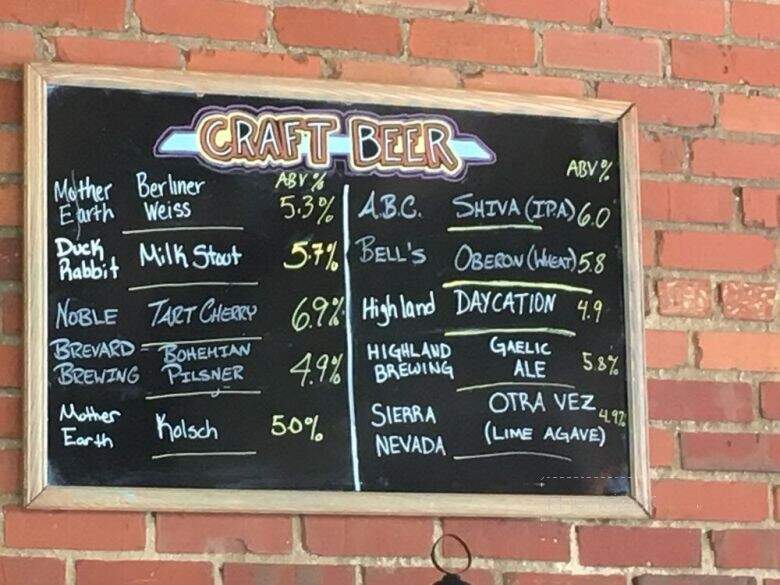 CRAFT BEER
ABV %
Mother Earth Berliner Weiss 5.3%
Duck Rabbit Milk Stout 5.7%
NOBLE TART CHERRY 6.9%
BREVARD BREWING - BOHEMIAN PILSNER 4.9%
Mother Earth Kolsch 5.0%
ABV %
A.B.C. SHIVA (IPA) 6.0
BELL'S OBERON (WHEAT) 5.8
Highland DAYCATION 4.9
HIGHLAND BREWING GAELIC ALE 5.8%
SIERRA NEVADA OTRA VEZ (LIME AGAVE) 4.9%